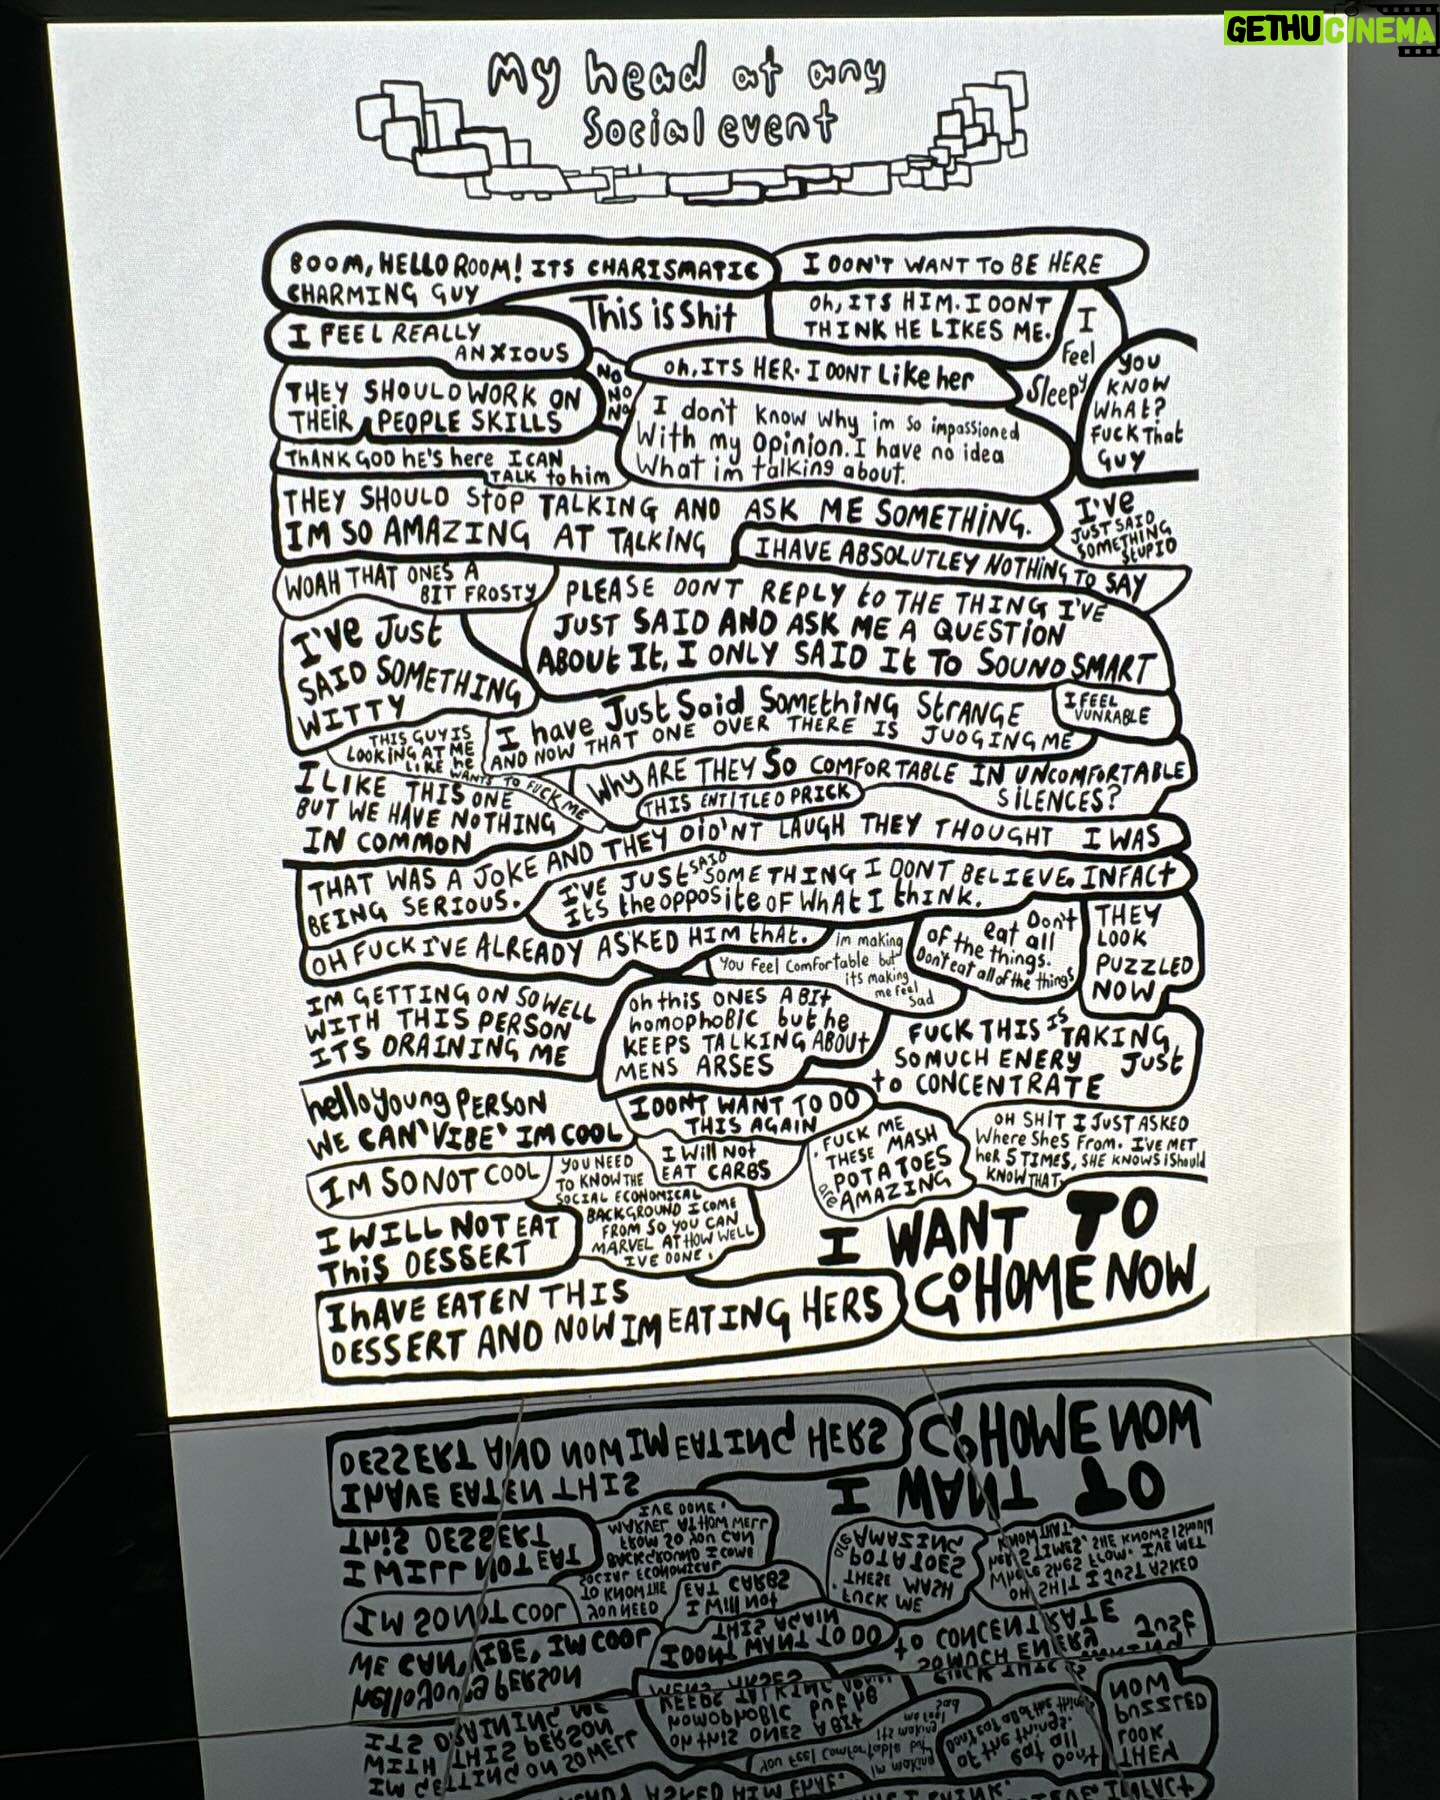 GETHUCINEMA
My head at any
Social event
BOOM, HELLO ROOM! ITS CHARISMATIC
CHARMING GUY
I DON'T WANT TO BE HERE
This is Shit
Oh, ITS HIM. I DONT
THINK HE LIKES ME.
I
Feel
Sleepy
I FEEL REALLY
ANXIOUS
NO
NO
NO
Oh, ITS HER. I DONT Like her
YOU
KNOW
WhAt?
FUCK That
GUY
THEY SHOULD WORK ON
THEIR PEOPLE SKILLS
I don't know why im so impassioned
With my opinion. I have no idea
What im talking about.
ThANK GOD he's here I CAN
TALK to him
THEY SHOULD StOP TALKING AND ASK ME SOMETHING.
IM SO AMAZING AT TALKING
I'VE
JUST SAID
SOMETHING
StUPID
I HAVE ABSOLUTLEY NOTHING TO SAY
WOAH THAT ONES A
BIT FROSTY
PLEASE DONT REPLY tO THE THING I'VE
JUST SAID AND ASK ME A QUESTION
ABOUt It, I ONLY SAID It TO SOUND SMART
I'VE JUST
SAID SOMETHING
WITTY
I have Just Said Something StRANGE
AND NOW THAT ONE OVER THERE IS JUDGING ME
I FEEL
VUNRABLE
THIS GUY IS
LOOKING AT ME
LIKE he WANTS TO FUCK ME
Why ARE THEY SO COMFORTABLE IN UNCOMFORTABLE
SILENCES?
THIS ENTITLED PRICK
I LIKE THIS ONE
BUT WE HAVE NOTHING
IN COMMON
THAT WAS A JOKE AND THEY DID'NT LAUGH THEY THOUGHT I WAS
BEING SERIOUS.
I'VE JUST SAID SOMETHING I DONT BELIEVE. INFACt
ItS the opposite OF WhAt I thINK.
OH FUCK I'VE ALREADY ASKED HIM thAt.
im making
You Feel Comfortable but
its making
me feel
Sad
Don't
eat all
of the things.
Don't eat all of the things
THEY
LOOK
PUZZLED
NOW
IM GETTING ON SO WELL
WITH THIS PERSON
ITS DRAINING ME
oh this ONES A BIt
homophoBIC but he
KEEPS TALKING ABOUt
MENS ARSES
FUCK THIS IS TAKING
SO MUCH ENERY JUSt
to CONCENTRATE
hello young PERSON
WE CAN 'VIBE' IM COOL
I DONT WANT TO DO
THIS AGAIN
FUCK ME
THESE MASH
POTATOES
are AMAZING
OH SHIT I JUST ASKED
Where Shes From. I'VE MET
heR 5 TIMES, SHE KNOWS i Should
KNOW THAT
IM SO NOT COOL
YOU NEED
TO KNOW THE
SOCIAL ECONOMICAL
BACKGROUND I COME
FROM SO YOU CAN
MARVEL AT HOW WELL
I'VE DONE.
I Will Not
EAT CARBS
I WILL NOT EAT
ThiS DESSERT
I WANT TO
GO HOME NOW
I hAVE EATEN THIS
DESSERT AND NOW IM EATING HERS